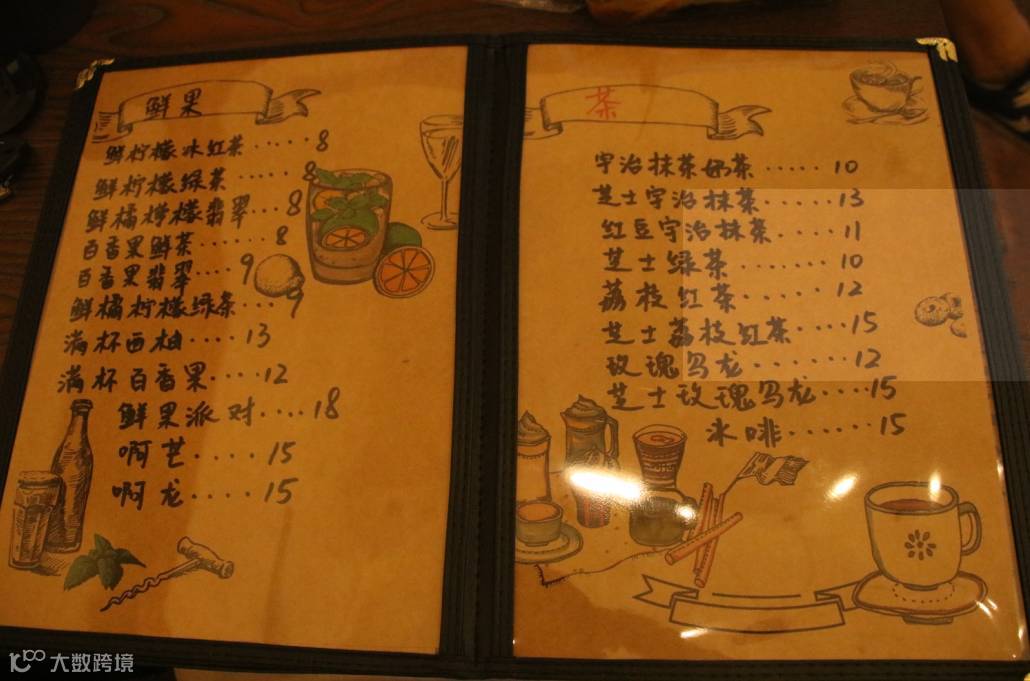 鲜果
鲜柠檬冰红茶·····8
鲜柠檬绿茶·····8
鲜橘柠檬翡翠····8
百香果鲜茶······8
百香果翡翠····9
鲜橘柠檬绿茶···9
满杯西柚····13
满杯百香果····12
鲜果派对····18
啊芒····15
啊龙····15
茶
宇治抹茶奶茶·····10
芝士宇治抹茶·····13
红豆宇治抹茶····11
芝士绿茶······10
荔枝红茶·····12
芝士荔枝红茶····15
玫瑰乌龙······12
芝士玫瑰乌龙···15
冰啡······15
大数跨境